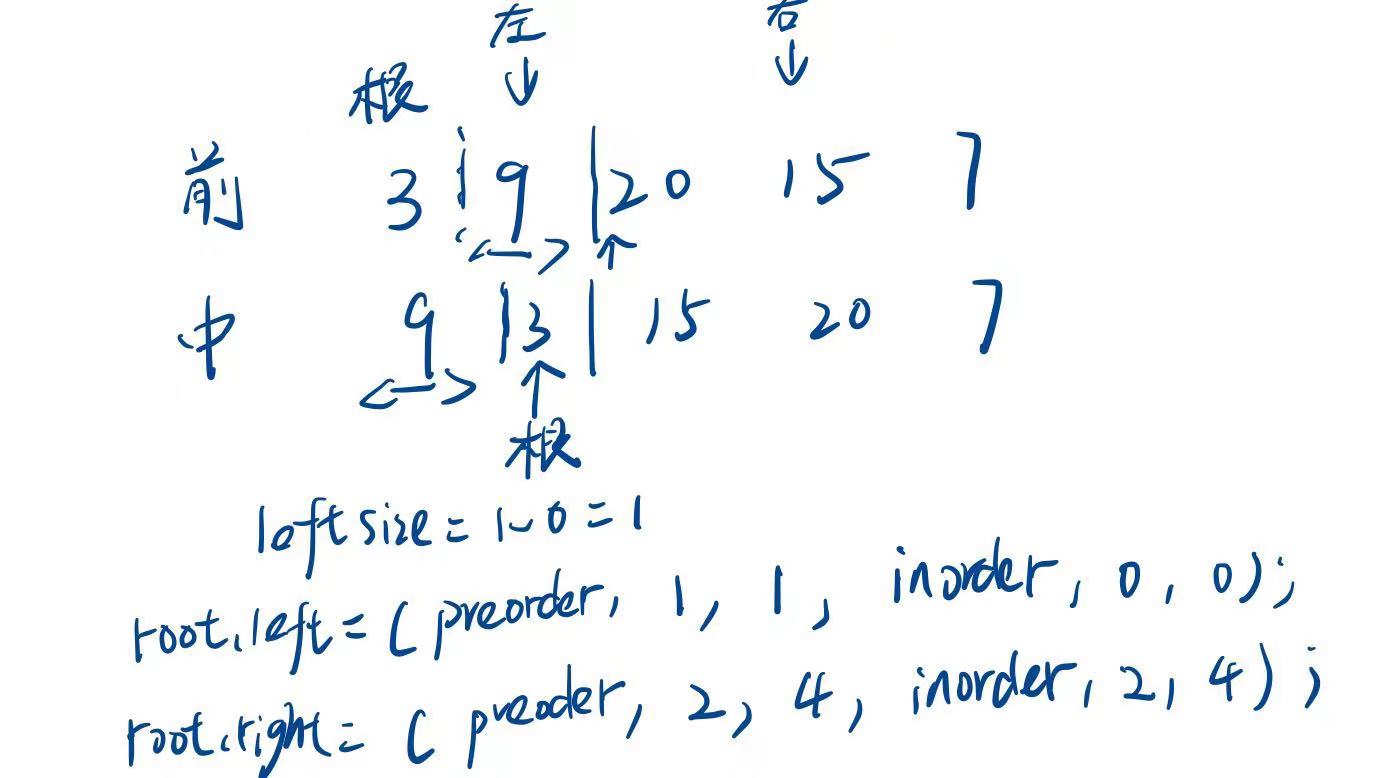 左 右
根
前 3 9 20 15 7
中 9 3 15 20 7
根
leftsize = 1-0 = 1
root.left = ( preorder, 1, 1, inorder, 0, 0);
root.right = ( preoder, 2, 4, inorder, 2, 4);